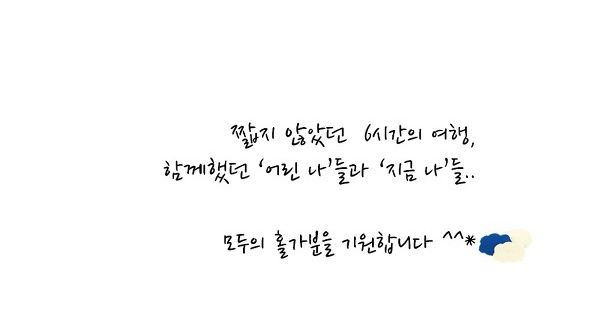 짧지 않았던 6시간의 여행,
함께했던 '어린 나'들과 '지금 나'들..
모두의 홀가분을 기원합니다 ^^*